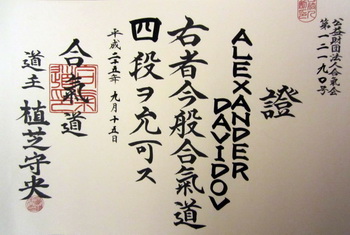 公益財団法人合氣会
第一二一九〇号
證
ALEXANDER
DAVIDOV
右者今般合氣道
四段ヲ允可ス
平成二十五年九月十五日
合氣道
道主 植芝守央